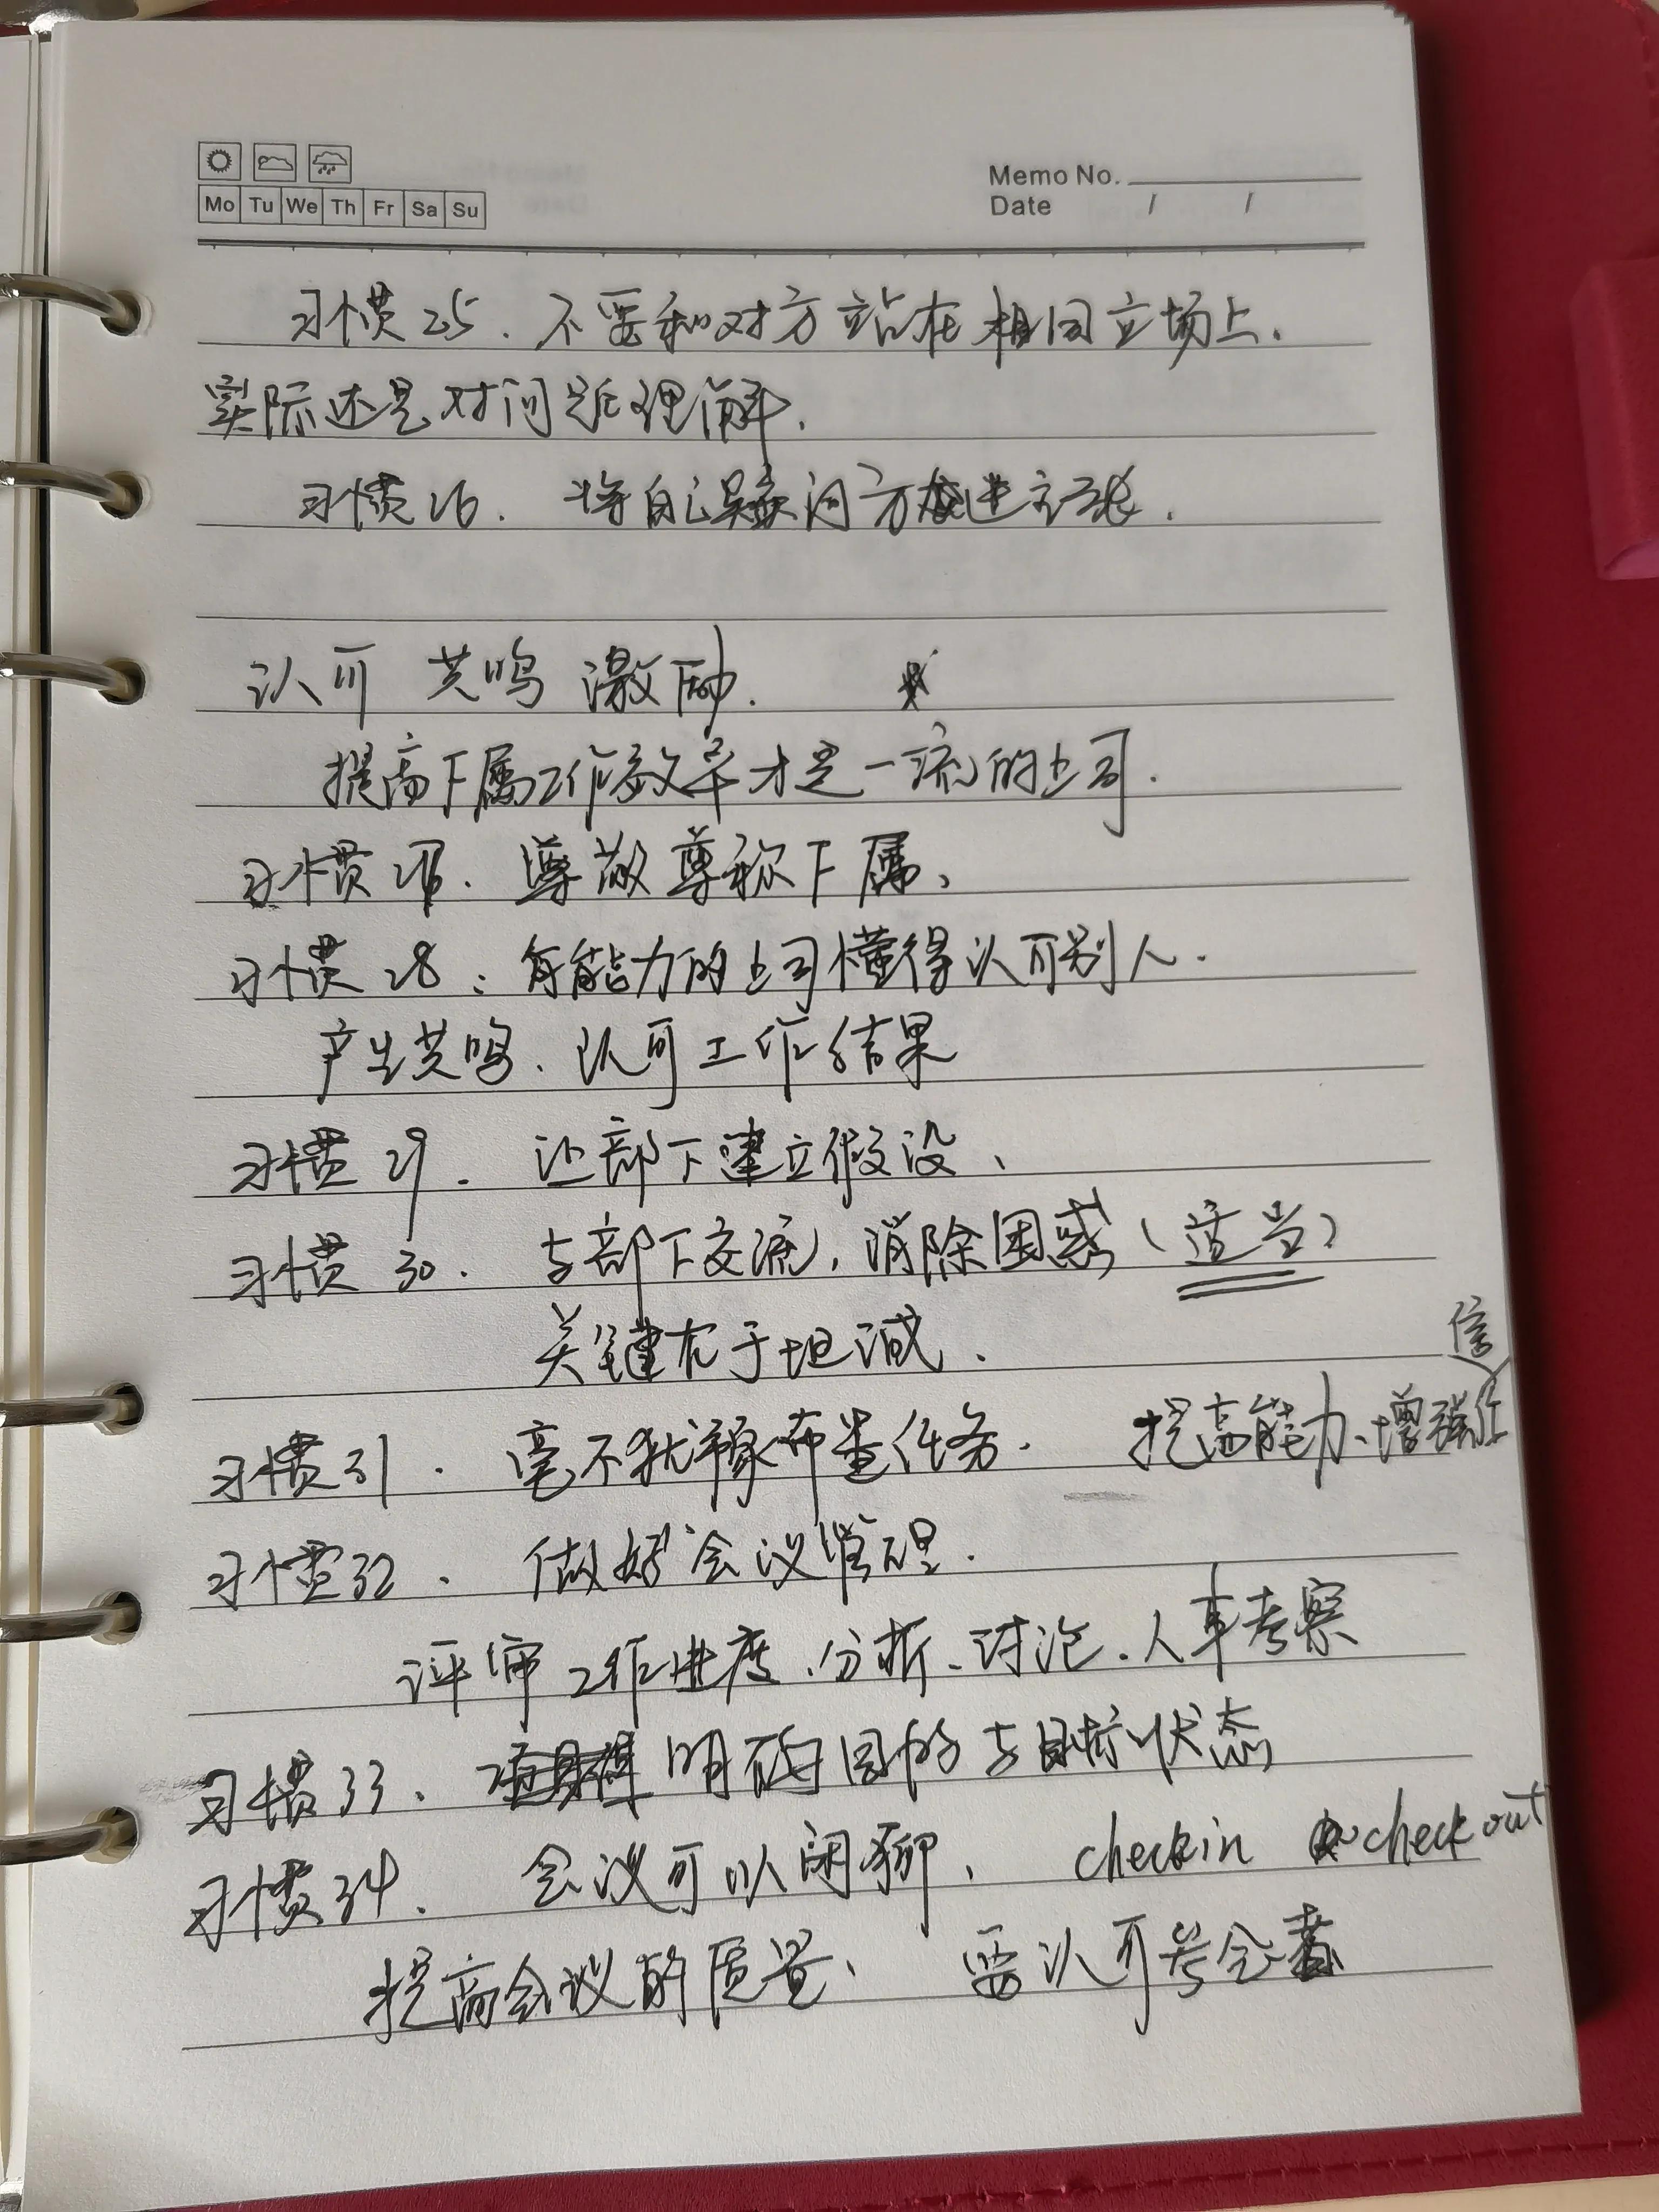 Mo Tu We Th Fr Sa Su
Memo No.
Date / /
习惯25. 不要和对方站在相同立场上.
实际还是对问题理解.
习惯26. 将自己疑问方式进主张.
认可 共鸣 激励.
提高下属工作效率才是一流的上司.
习惯27. 尊敬尊称下属、
习惯28: 有能力的上司懂得认可别人.
产生共鸣、认可工作结果
习惯29. 让部下建立假设、
习惯30. 与部下交流, 消除困惑 (适当)
关键在于坦诚.
习惯31. 毫不犹豫布置任务. 提高能力、增强信任
习惯32. 做好会议管理.
评审工作进度、分析、讨论、人事考察
习惯33、 明确目的与目标状态
习惯34. 会议可以闲聊、 check in check out
提高会议的质量、 要认可与会者